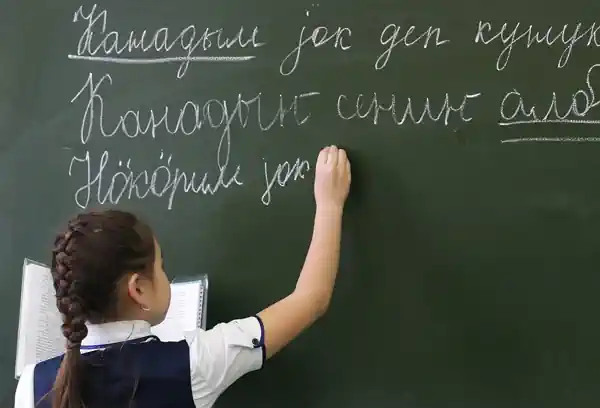 Канадым јок деп кунук
Канадыҥ сениҥ
Нӧкӧрим јок